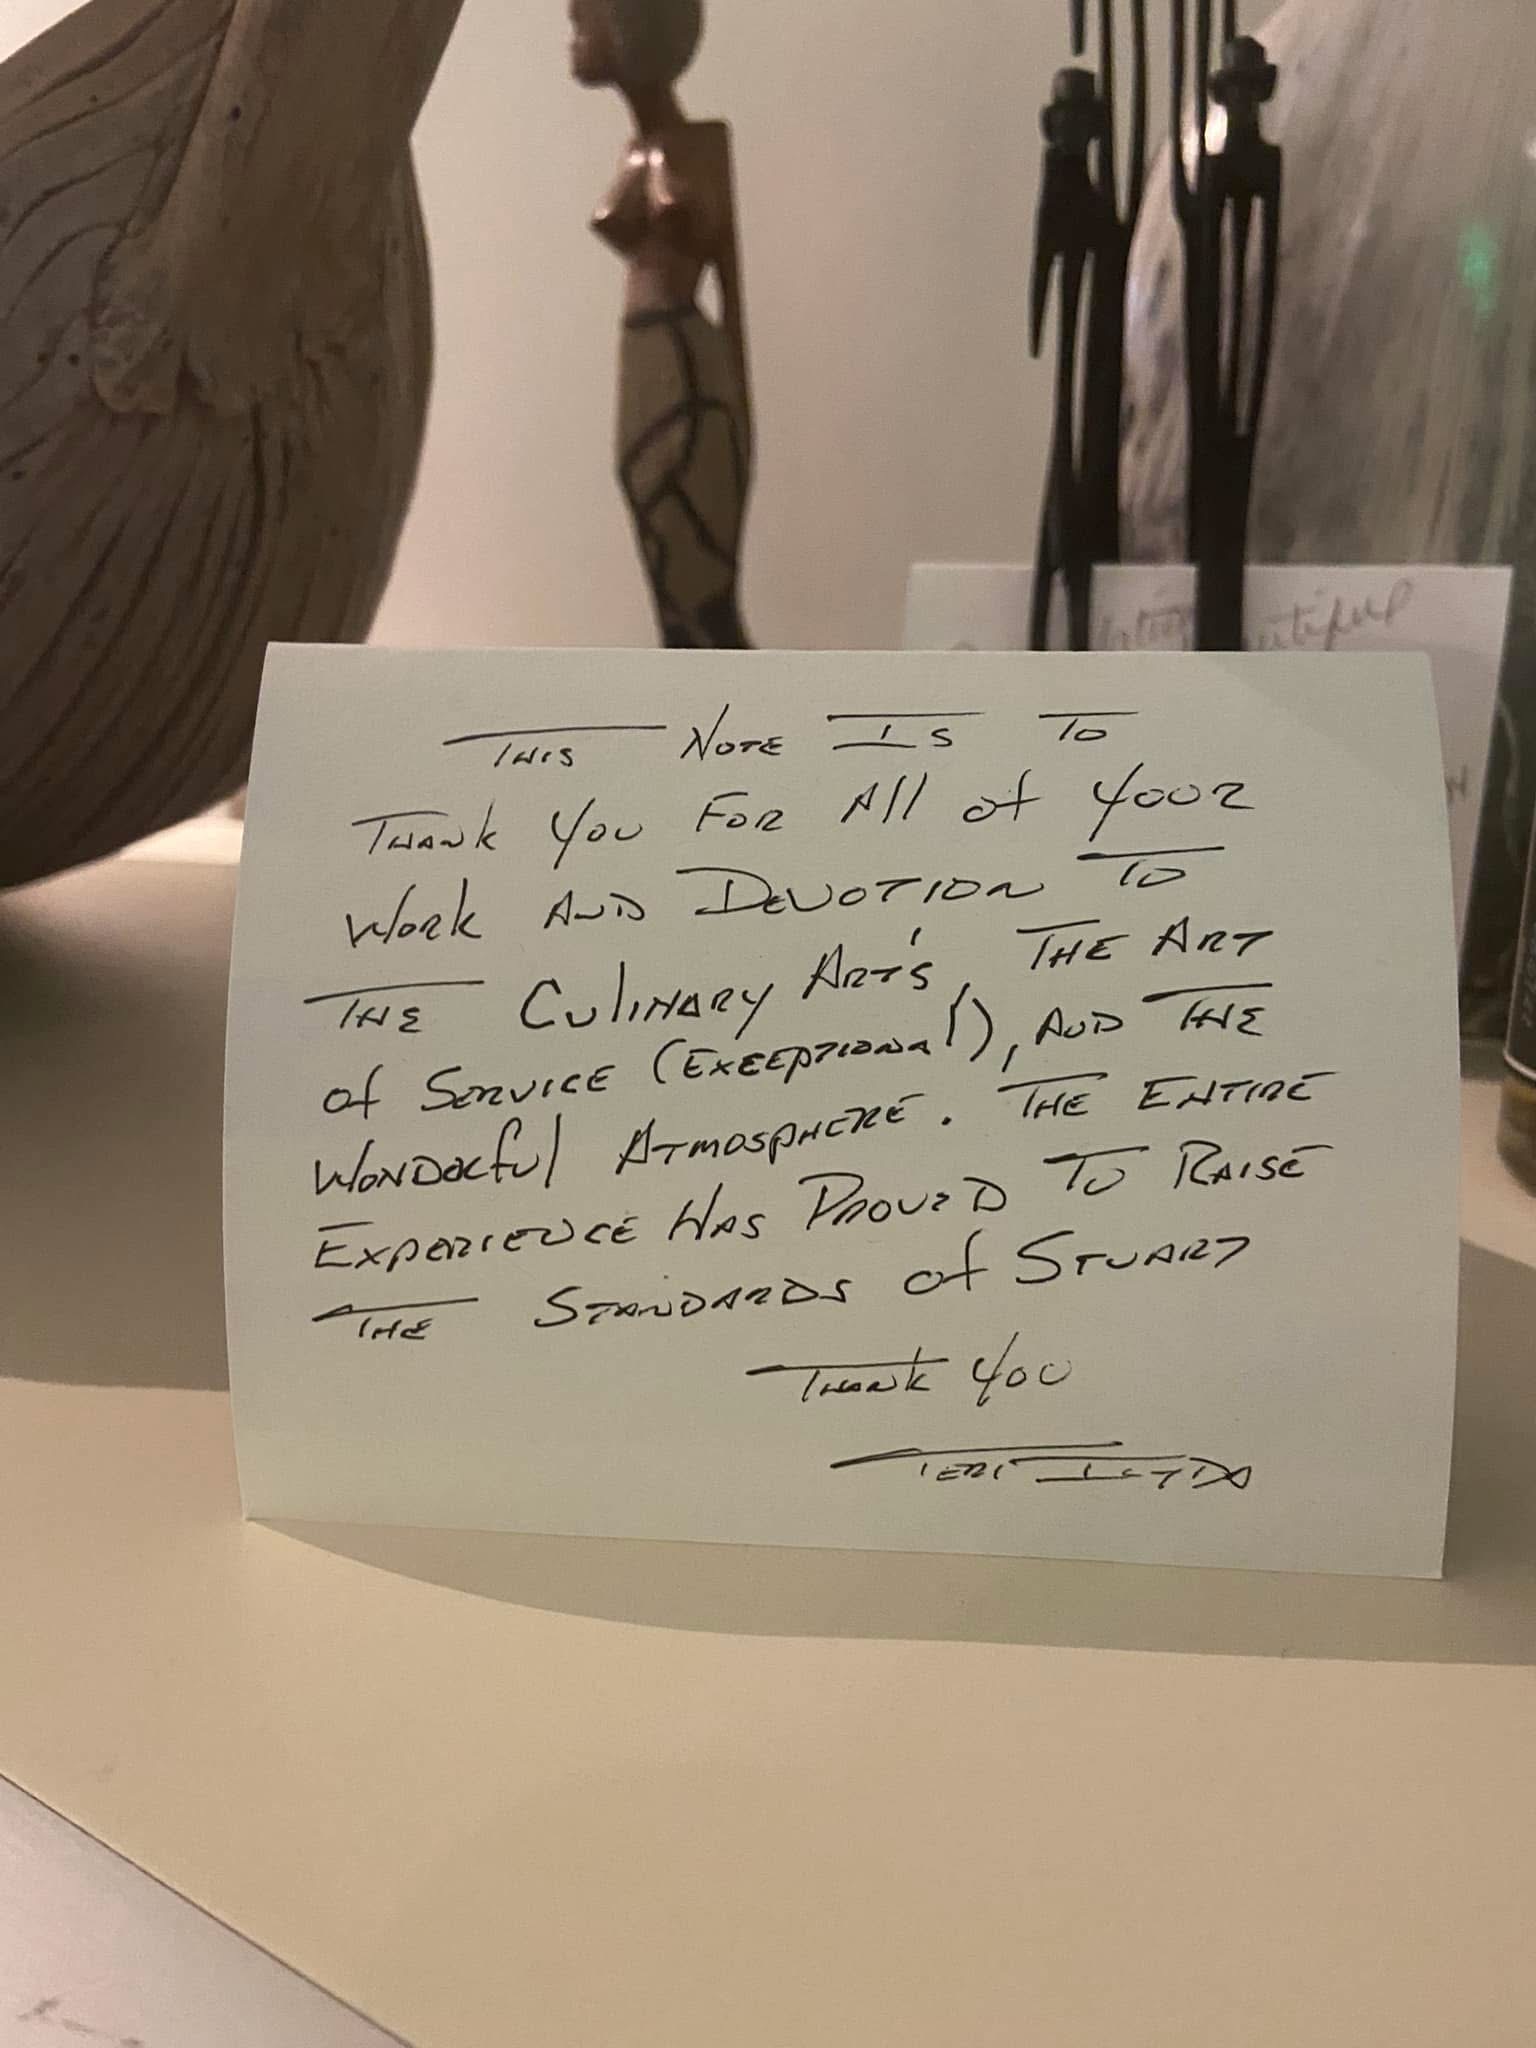 This Note Is To
Thank You For All of Your
Work And Devotion To
The Culinary Art's, The Art
of Service (Exceptional!), And The
Wonderful Atmosphere. The Entire
Experience Has Proved To Raise
The Standards of Stuart
Thank You
Teri